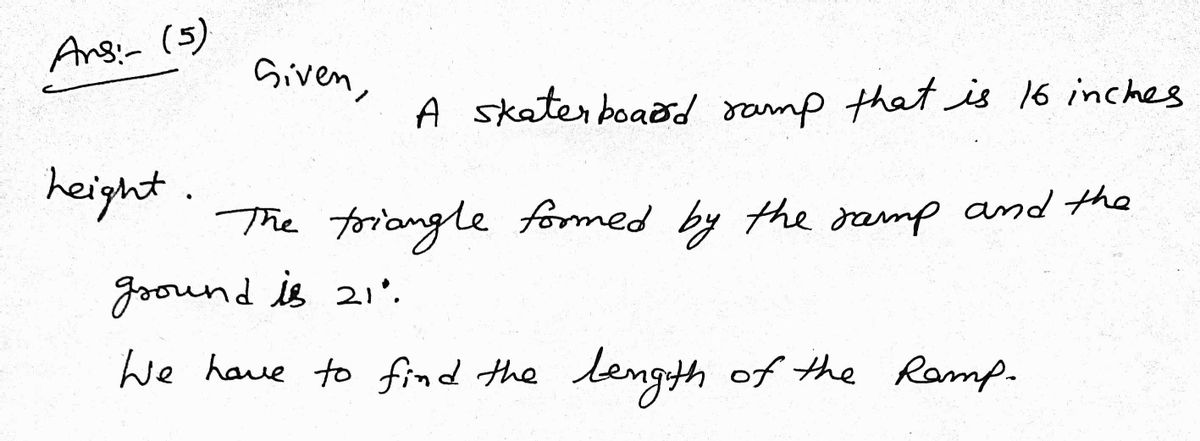 Ans:- (5)
Given,
A skaterboard ramp that is 16 inches
height.
The triangle formed by the ramp and the
ground is 21°.
We have to find the length of the Ramp.